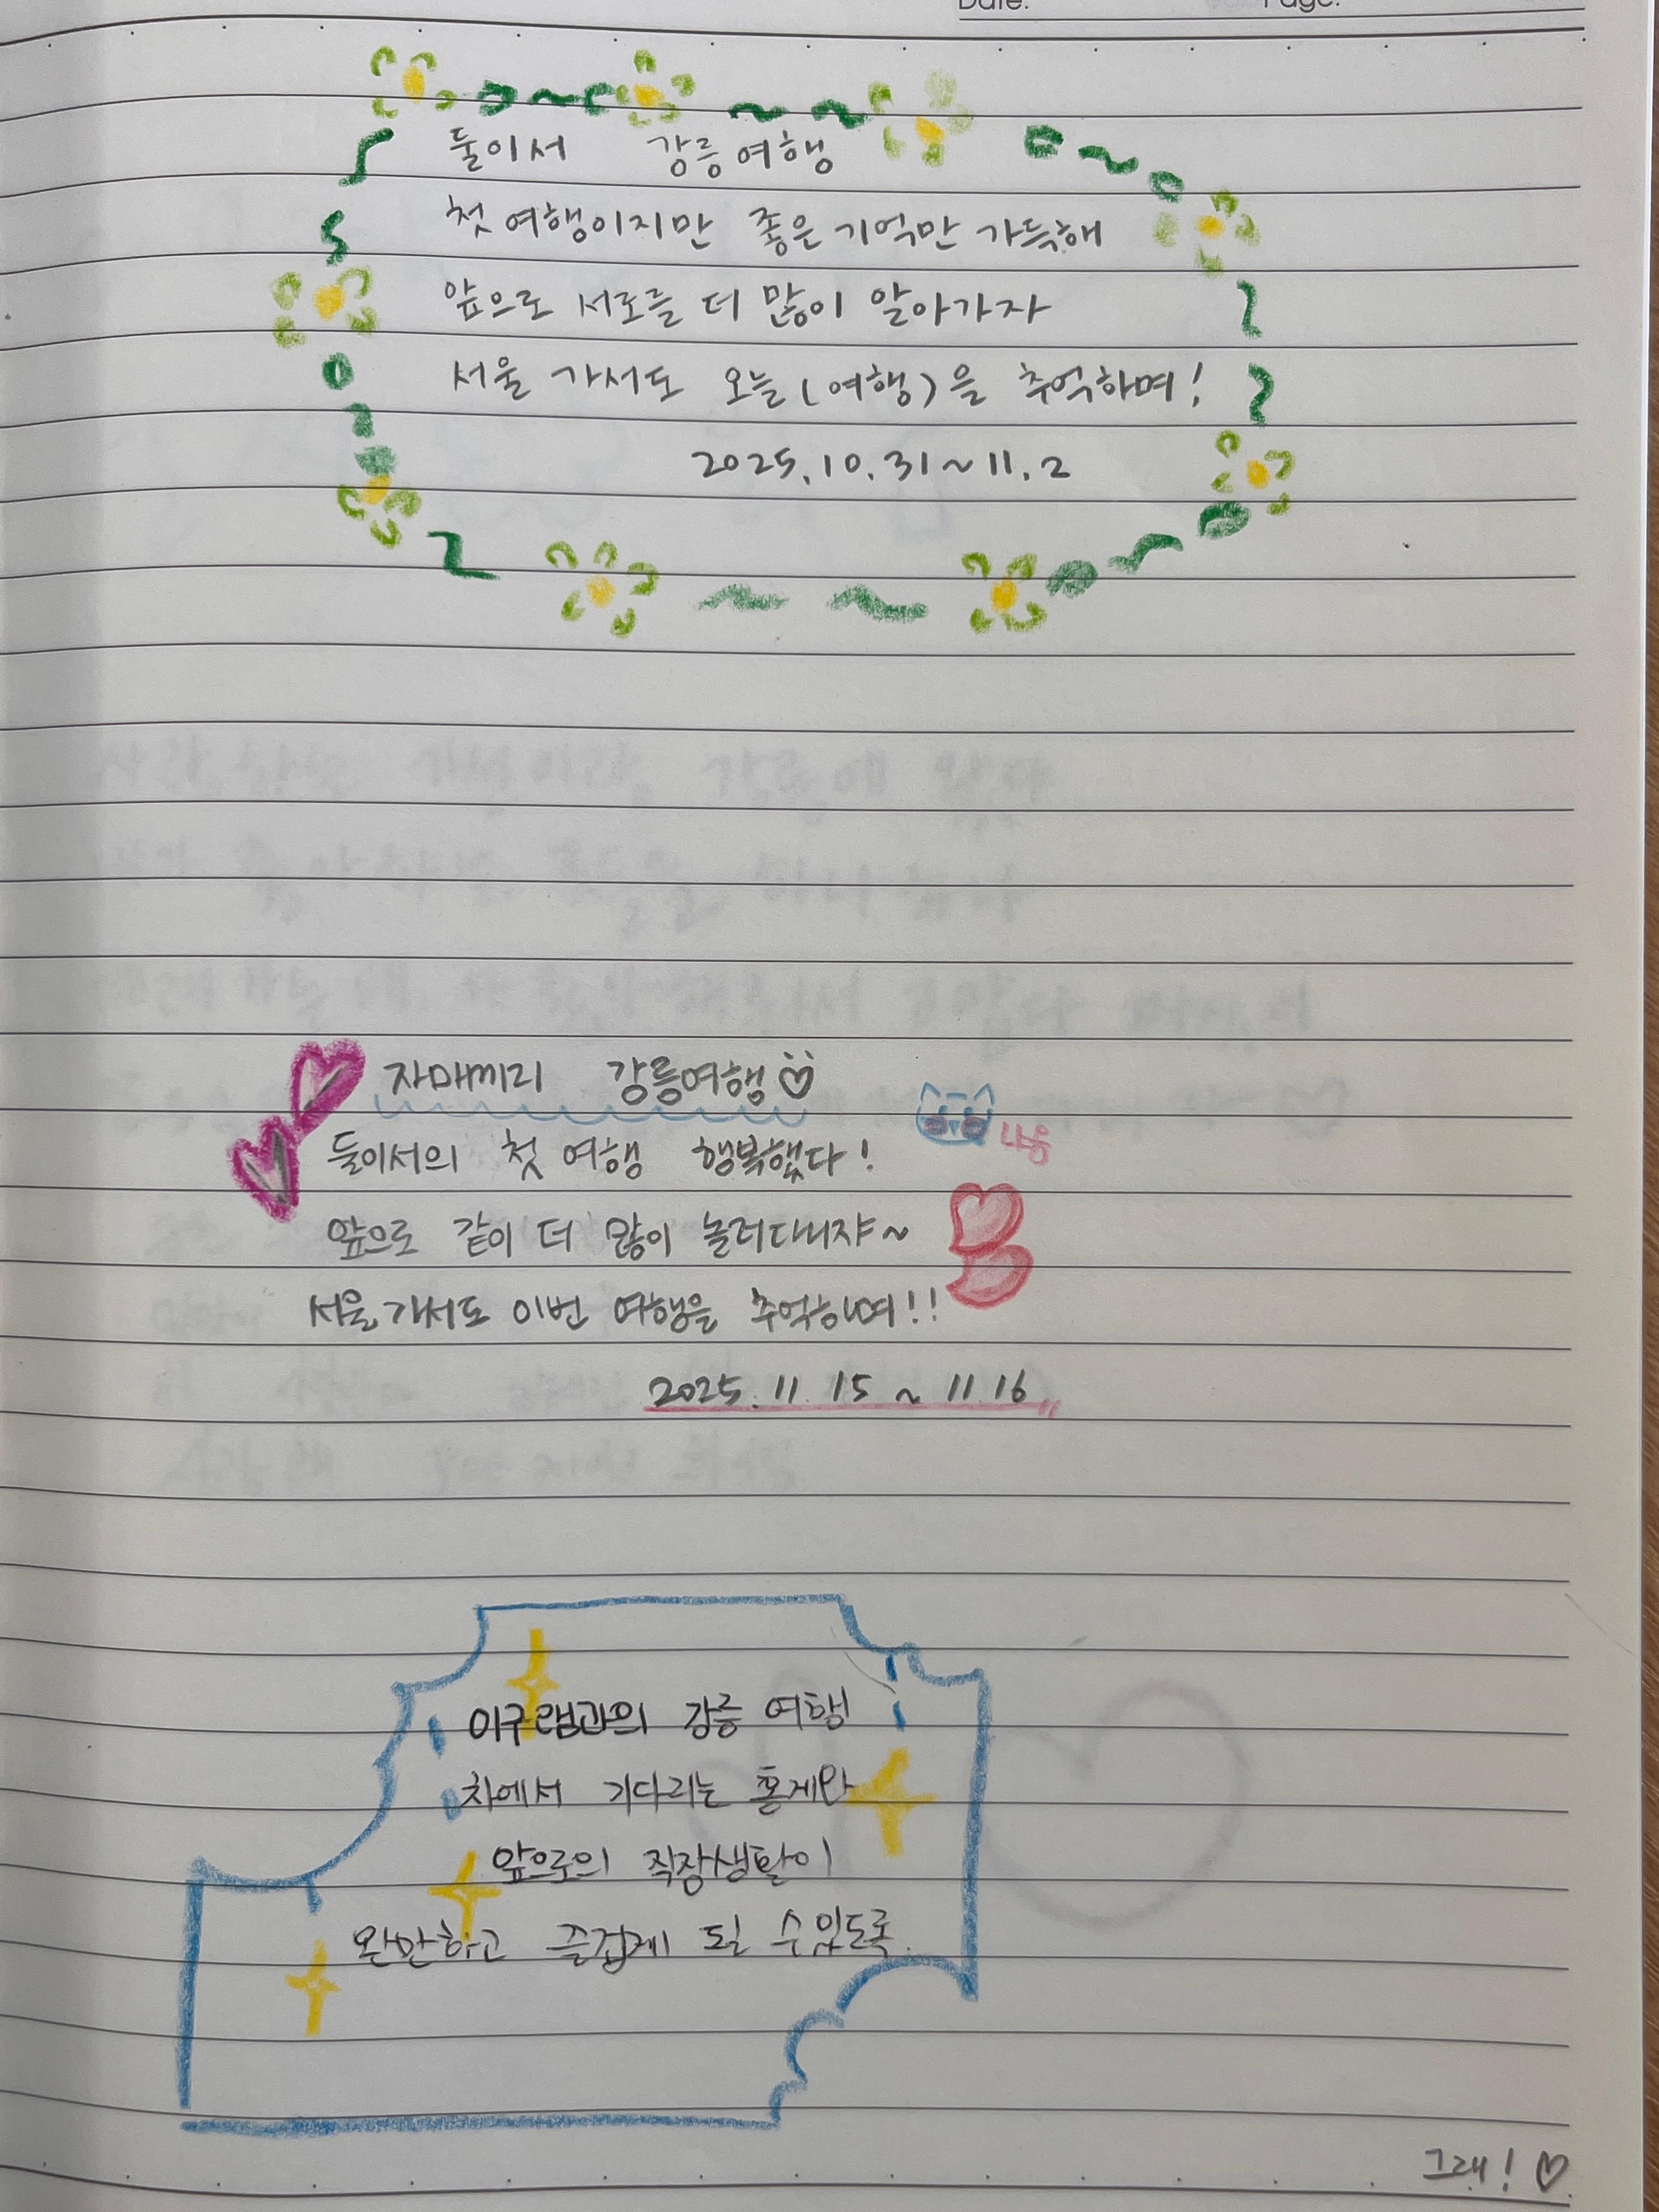 Date. Page.
둘이서 강릉여행
첫 여행이지만 좋은 기억만 가득해
앞으로 서로를 더 많이 알아가자
서울 가서도 오늘(여행)을 추억하며!
2025.10.31~11.2
자매끼리 강릉여행
나옹
둘이서의 첫 여행 행복했다!
앞으로 같이 더 많이 놀러다니쟈~
서울가서도 이번 여행을 추억하며!!
2025.11.15~11.16
이구램과의 강릉 여행
차에서 기다리는 홍게와
앞으로의 직장생활이
완만하고 즐겁게 될 수있도록.
그래!♡